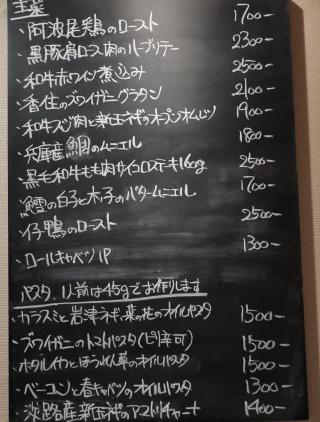 主菜
・阿波尾鶏のロースト 1700-
・黒豚肩ロース肉のハーブソテー 2300-
・和牛赤ワイン煮込み 2500-
・香住のズワイガニグラタン 2100-
・和牛スジ肉と新玉ネギのオープンオムレツ 1900-
・兵庫産鯛のムニエル 1800-
・黒毛和牛もも肉サイコロステーキ160g 2500-
・鱈の白子と木子のバタームニエル 1700-
・仔鴨のロースト 2500-
・ロールキャベツ1P 1300-
パスタ、1人前は45gでお作りします
・カラスミと岩津ネギ、菜の花のオイルパスタ 1500-
・ズワイガニのトマトパスタ(ピリ辛可) 1500-
・ホタルイカとほうれん草のオイルパスタ 1500-
・ベーコンと春キャベツのオイルパスタ 1300-
・淡路産新玉ネギのアマトリチャーナ 1400-